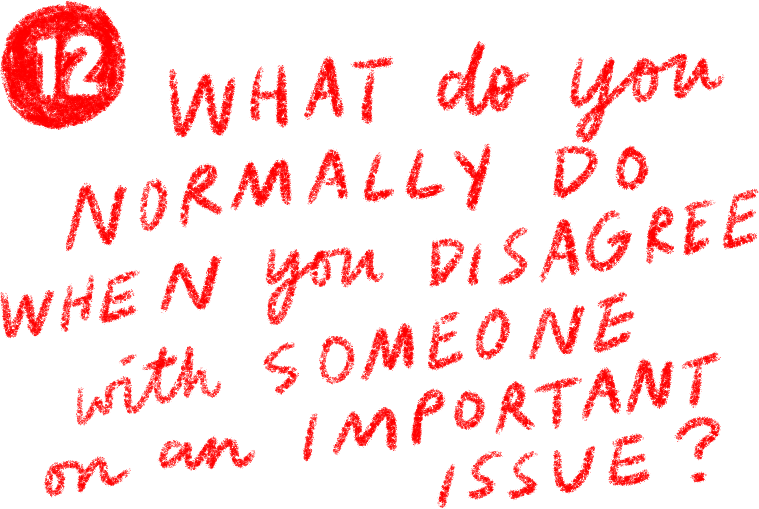 12
WHAT do you
NORMALLY DO
WHEN you DISAGREE
with SOMEONE
on an IMPORTANT
ISSUE?